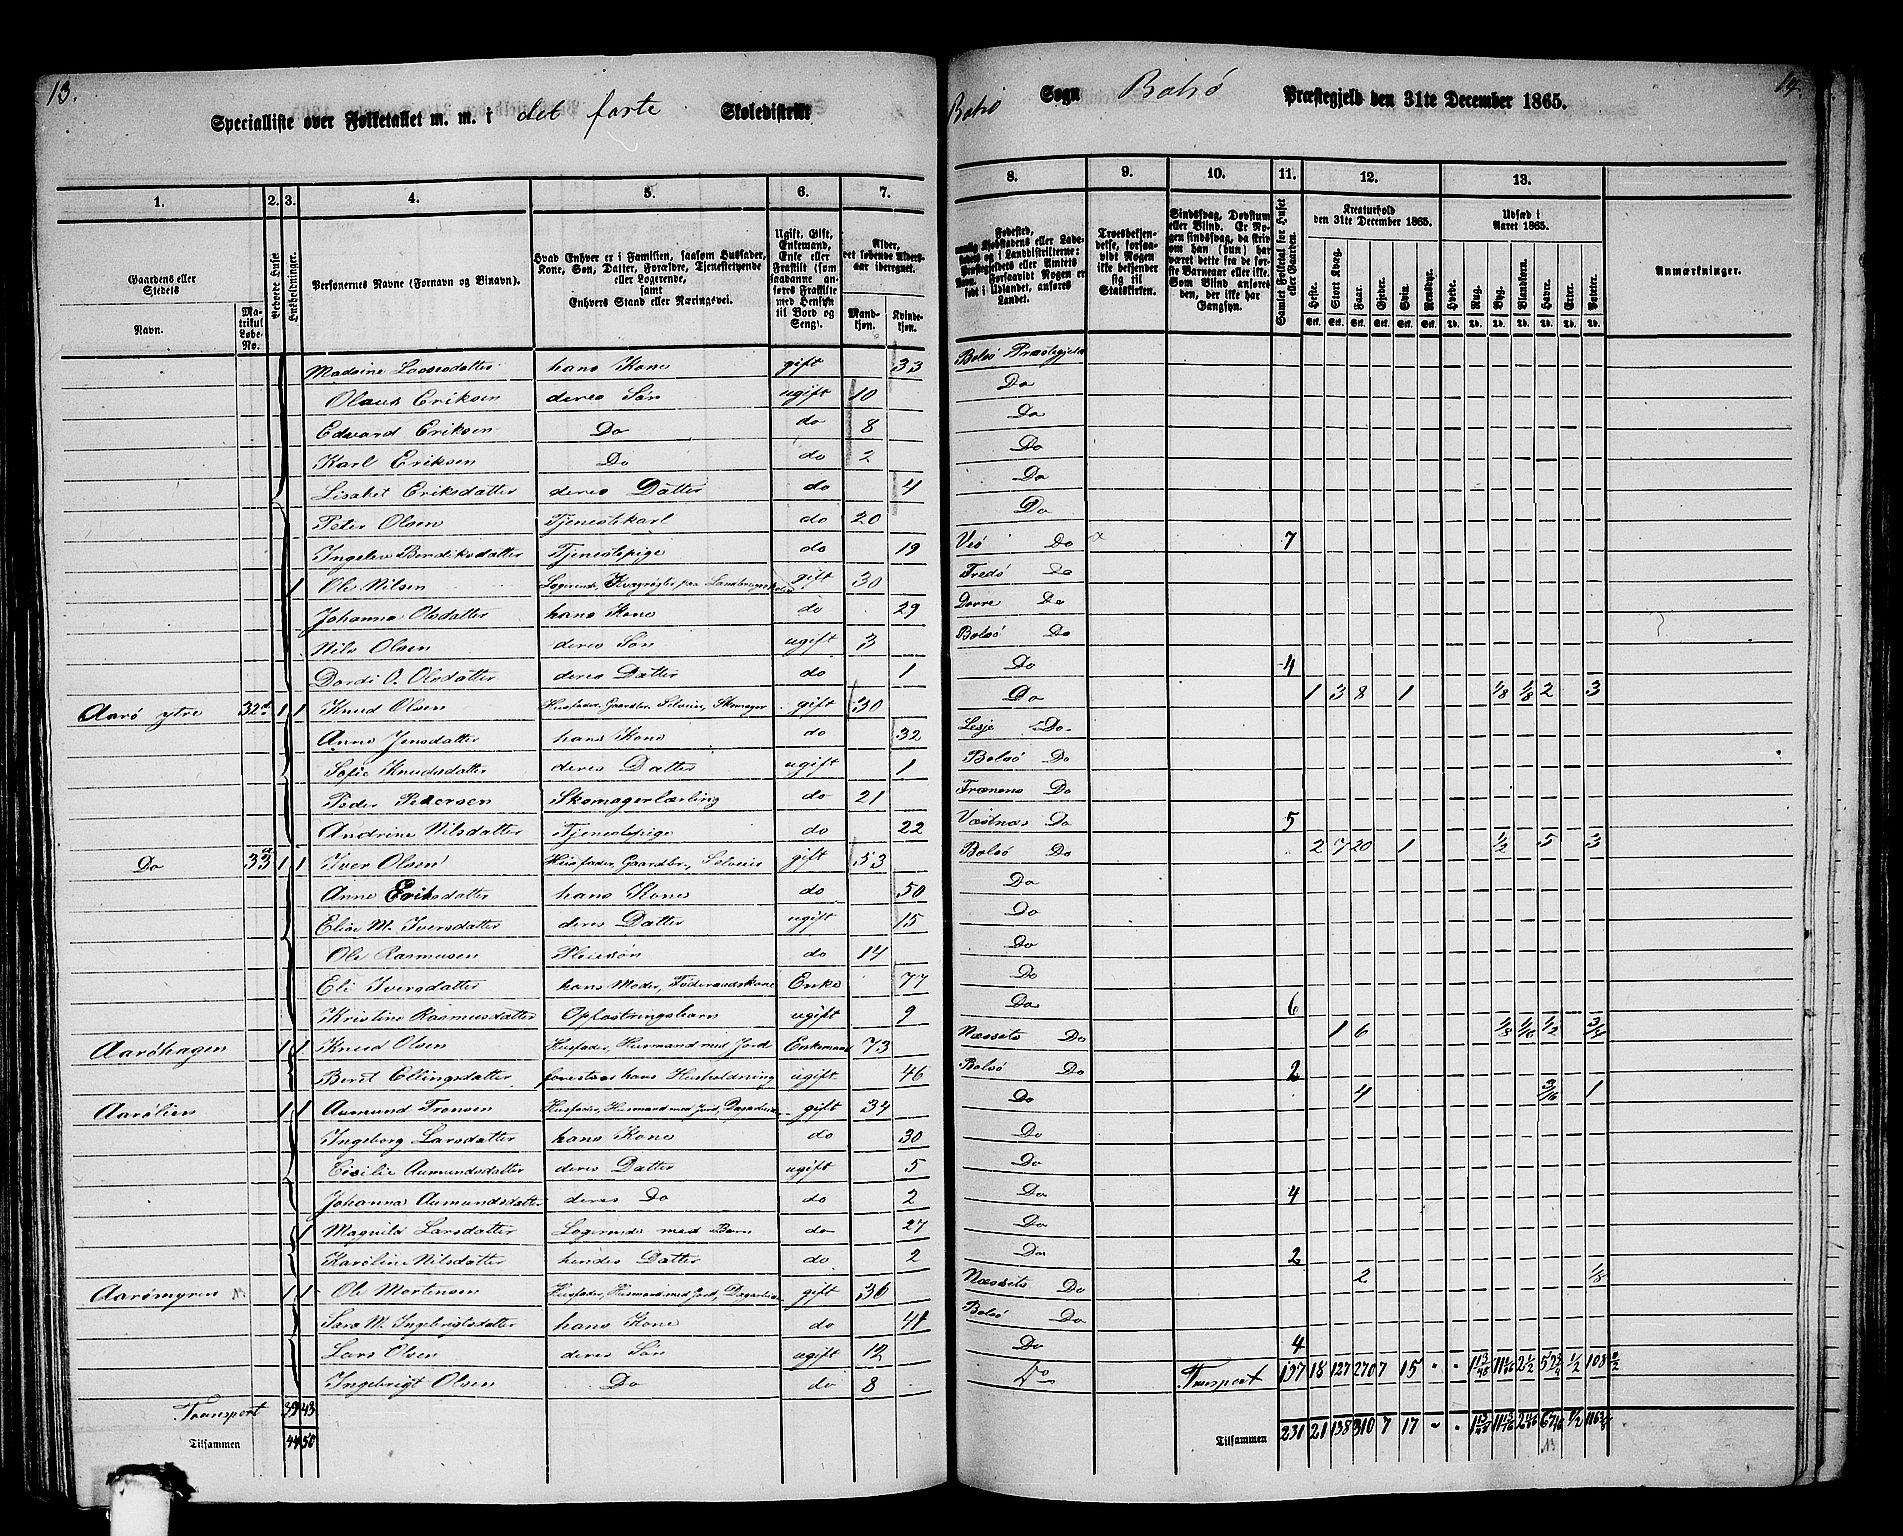 13.
Specialliste over Folketallet m. m. i det første Skoledistrikt
Bolsø Sogn Bolsø Præstegjeld den 31te December 1865.
14.
1. 2. 3. 4. 5. 6. 7. 8. 9. 10. 11. 12. 13.
Gaardens eller Stedets
Navn. Matrikul Løbe-No.
Beboede Huse.
Husholdninger.
Personernes Navne (Fornavn og Binavn).
Hvad Enhver er i Familien, saasom Husfader, Kone, Søn, Datter, Forældre, Tjenestetyende eller Logerende, samt Enhvers Stand eller Næringsvei.
Ugift, Gift, Enkemand, Enke eller Fraskilt (som saadanne anføres Fraskilte med Hensyn til Bord og Seng).
Alder, det løbende Aldersaar iberegnet.
Mandkjøn. Kvindekjøn.
Troesbekjendelse, forsaavidt Nogen ikke bekjender sig til Statskirken.
Sindssvag, Døvstum eller Blind. Er Nogen sindssvag, da skriv om han (hun) har været dette fra de første Barneaar eller ikke. Som Blind anføres den, der ikke har Gangsyn.
Samlet Folketal for Huset eller Gaarden.
Kreaturhold den 31te December 1865.
Heste. Stort Kvæg. Faar. Gjeder. Svin. Rensdyr.
Udsæd i Aaret 1865.
Hvede. Rug. Byg. Blandkorn. Havre. Erter. Poteter.
Anmærkninger.
Madsine Lassesdatter hans Kone gift 33 Bolsø Præstegjeld
Olaus Eriksen deres Søn ugift 10 Do
Edvard Eriksen Do do 8 Do
Karl Eriksen Do do 2 Do
Lisabet Eriksdatter deres Datter do 4 Do
Peter Olsen Tjenestekarl do 20 Do
Ingeleu Bendiksdatter Tjenestepige do 19 Veø Do 7
1 Ole Nilsen Logerende, Kvægrøgter paa Landbrugsskolen gift 30 Fredø Do
Johanna Olsdatter hans Kone do 29 Dovre Do
Nils Olsen deres Søn ugift 3 Bolsø Do
Dordi O. Olsdatter deres Datter do 1 Do 4
Aarø ytre 32d 1 1 Knud Olsen Husfader, Gaardbr. Selveier, Skomager gift 30 Do 1 3 8 1 1/8 1/8 2 3
Anne Jensdatter hans Kone do 32 Lesje Do
Sofie Knudsdatter deres Datter ugift 1 Bolsø Do
Peder Pedersen Skomagerlærling do 21 Frænens Do
Andrine Nilsdatter Tjenestepige do 22 Vestnæs Do 5
Do 33a 1 1 Iver Olsen Husfader, Gaardbr., Selveier gift 53 Bolsø Do 2 7 20 1 1/2 5 3
Anne Eriksdatter hans Kone do 50 Do
Elise M. Iversdatter deres Datter ugift 15 Do
Ole Rasmusen Pleiesøn do 14 Do
Eli Iversdatter hans Moder, Føderaadskone Enke 77 Do
Kristine Rasmusdatter Opfostringsbarn ugift 9 Do 6
Aarøhagen 1 1 Knud Olsen Husfader, Husmand med Jord Enkemand 73 Næssets Do 1 6 1/8 1/16 1/2 3/4
Beret Ellingsdatter forestaar hans Husholdning ugift 46 Bolsø Do 2
Aarølien 1 1 Aumund Tronsen Husfader, Husmand med Jord, Dagarbeider gift 34 Do 4 3/16 1
Ingeborg Larsdatter hans Kone do 30 Do
Cisilie Aumundsdatter deres Datter ugift 5 Do
Johanna Aumundsdatter deres Do do 2 Do 4
1 Magnild Larsdatter Logerende med Barn do 27 Do
Karoline Nilsdatter hendes Datter do 2 Do 2
Aarømyren 1 1 Ole Mortensen Husfader, Husmand med Jord, Dagarbeider gift 36 Næssets Do 2 1/8
Sara M. Ingebrigtsdatter hans Kone do 41 Bolsø Do
Lars Olsen deres Søn ugift 12 Do 4
Ingebrigt Olsen Do do 8 Do
Transport 39 43 Transport 197 18 127 270 7 15 1 13/48
Tilsammen 44 50 Tilsammen 231 21 138 310 7 17